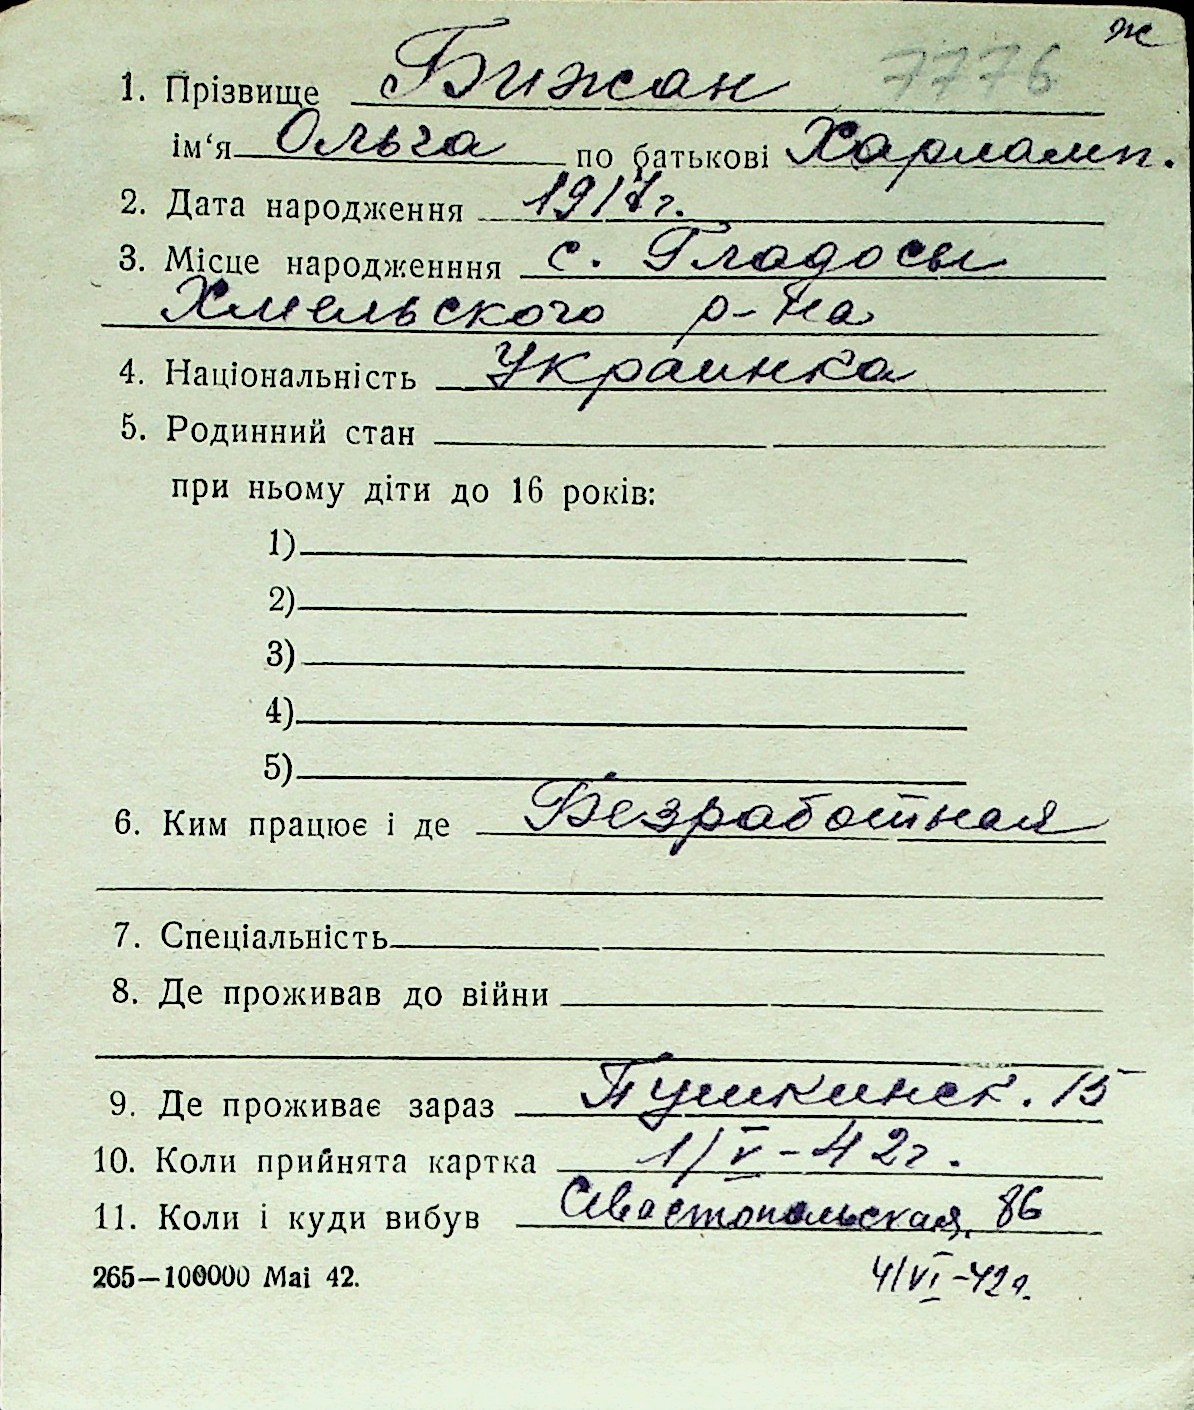 ж
7776
1. Прізвище Бижан
ім‘я Ольга по батькові Харламп.
2. Дата народження 1917г.
3. Місце народженння с. Гладосы
Хмельского р-на
4. Національність Украинка
5. Родинний стан
при ньому діти до 16 років:
1)
2)
3)
4)
5)
6. Ким працює і де Безработная
7. Спеціальність
8. Де проживав до війни
9. Де проживає зараз Пушкинск. 15
10. Коли прийнята картка 1/V-42г.
11. Коли і куди вибув Севастопольская, 86
265—100000 Mai 42. 4/VI-42г.